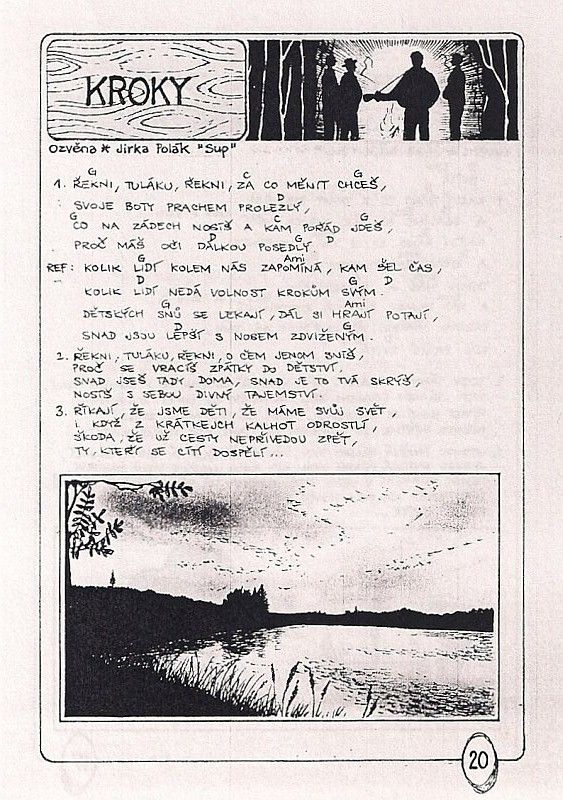 KROKY
Ozvěna * Jirka Polák "Sup"
G C G
1. ŘEKNI, TULÁKU, ŘEKNI, ZA CO MĚNIT CHCEŠ,
D
SVOJE BOTY PRACHEM PROLEZLÝ,
G C G
CO NA ZÁDECH NOSÍŠ A KAM POŘÁD JDEŠ,
D G D
PROČ MÁŠ OČI DÁLKOU POSEDLÝ.
G Ami
REF: KOLIK LIDÍ KOLEM NÁS ZAPOMÍNÁ, KAM ŠEL ČAS,
D G D
KOLIK LIDÍ NEDÁ VOLNOST KROKŮM SVÝM.
G Ami
DĚTSKÝCH SNŮ SE LEKAJÍ, DÁL SI HRAJÍ POTAJÍ,
D G
SNAD JSOU LEPŠÍ S NOSEM ZDVIŽENÝM.
2. ŘEKNI, TULÁKU, ŘEKNI, O ČEM JENOM SNÍŠ,
PROČ SE VRACÍŠ ZPÁTKY DO DĚTSTVÍ,
SNAD JSEŠ TADY DOMA, SNAD JE TO TVÁ SKRÝŠ,
NOSÍŠ S SEBOU DIVNÝ TAJEMSTVÍ.
3. ŘÍKAJÍ, ŽE JSME DĚTI, ŽE MÁME SVŮJ SVĚT,
I KDYŽ Z KRÁTKEJCH KALHOT ODROSTLI,
ŠKODA, ŽE UŽ CESTY NEPŘIVEDOU ZPĚT,
TY, KTEŘÍ SE CÍTÍ DOSPĚLÍ...
20